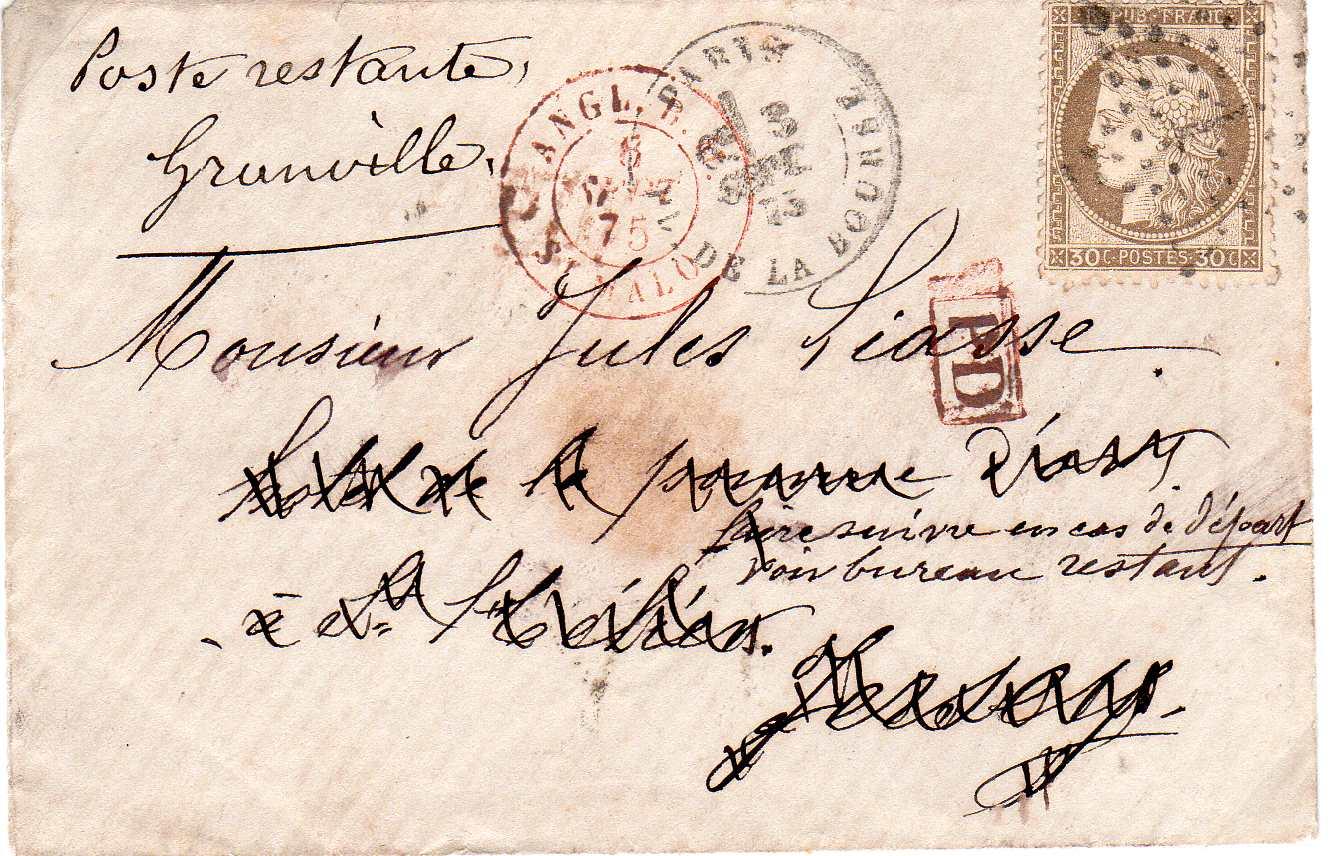 Poste restante,
Granville.
ANGL. B. M.
6
SEPT
75
ST MALO
PARIS
3
SEPT
75
PL. DE LA BOURSE
REPUB · FRANC
30 C · POSTES · 30 C
PD
Monsieur Jules Liasse.
faire suivre en cas de départ
son bureau restant.
à St
Jersey